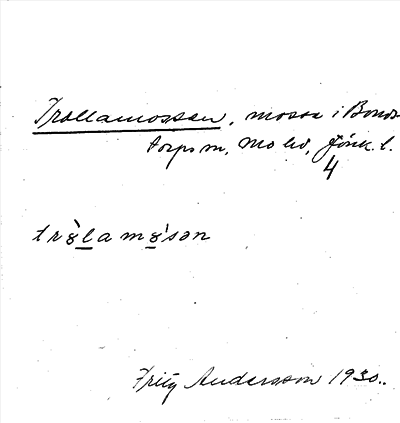 Trollamossen, mosse i Bonds-
torps m, Mo hd, Jönk. l.
4
trò̱ḻa mò̱sən
Fritz Andersson 1930.